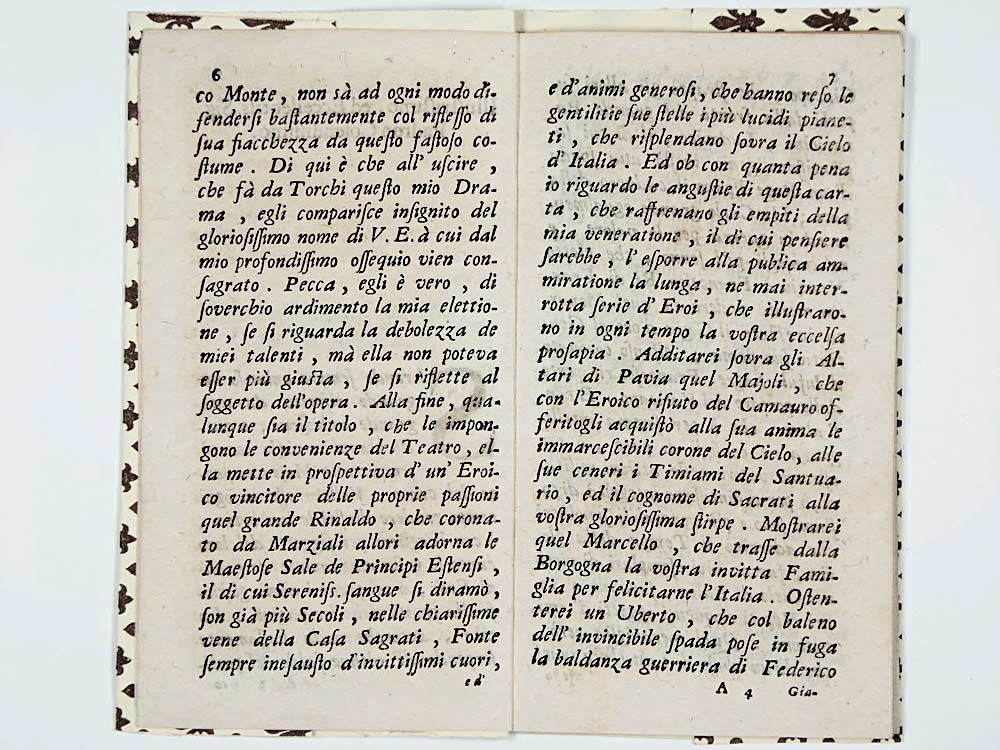 6
co Monte, non sà ad ogni modo di-
fenderſi baſtantemente col rifleſſo di
ſua fiacchezza da queſto faſtoſo co-
ſtume. Di qui è che all' uſcire,
che fà da Torchi queſto mio Dra-
ma, egli compariſce inſignito del
glorioſiſſimo nome di V. E. à cui dal
mio profondiſſimo oſſequio vien con-
ſagrato. Pecca, egli è vero, di
ſoverchio ardimento la mia elettio-
ne, ſe ſi riguarda la debolezza de
miei talenti, mà ella non poteva
eſſer più giuſta, ſe ſi riflette al
ſoggetto dell'opera. Alla fine, qua-
lunque ſia il titolo, che le impon-
gono le convenienze del Teatro, el-
la mette in proſpettiva d'un' Eroi-
co vincitore delle proprie paſſioni
quel grande Rinaldo, che corona-
to da Marziali allori adorna le
Maeſtoſe Sale de Principi Eſtenſi,
il di cui Sereniſs. ſangue ſi diramò,
ſon già più Secoli, nelle chiariſſime
vene della Caſa Sagrati, Fonte
ſempre ineſauſto d'invittiſſimi cuori,
ed'
7
e d'animi generoſi, che hanno reſo le
gentilitie ſue ſtelle i più lucidi piane-
ti, che riſplendano ſovra il Cielo
d'Italia. Ed oh con quanta pena
io riguardo le anguſtie di queſta car-
ta, che raffrenano gli empiti della
mia veneratione, il di cui penſiere
ſarebbe, l'eſporre alla publica am-
miratione la lunga, ne mai inter-
rotta ſerie d'Eroi, che illuſtraro-
no in ogni tempo la voſtra eccelſa
proſapia. Additarei ſovra gli Al-
tari di Pavia quel Majoli, che
con l'Eroico rifiuto del Camauro of-
feritogli acquiſtò alla ſua anima le
immarceſcibili corone del Cielo, alle
ſue ceneri i Timiami del Santua-
rio, ed il cognome di Sacrati alla
voſtra glorioſiſſima ſtirpe. Moſtrarei
quel Marcello, che traſſe dalla
Borgogna la voſtra invitta Fami-
glia per felicitarne l'Italia. Oſten-
terei un Uberto, che col baleno
dell' invincibile ſpada poſe in fuga
la baldanza guerriera di Federico
A 4 Gia-